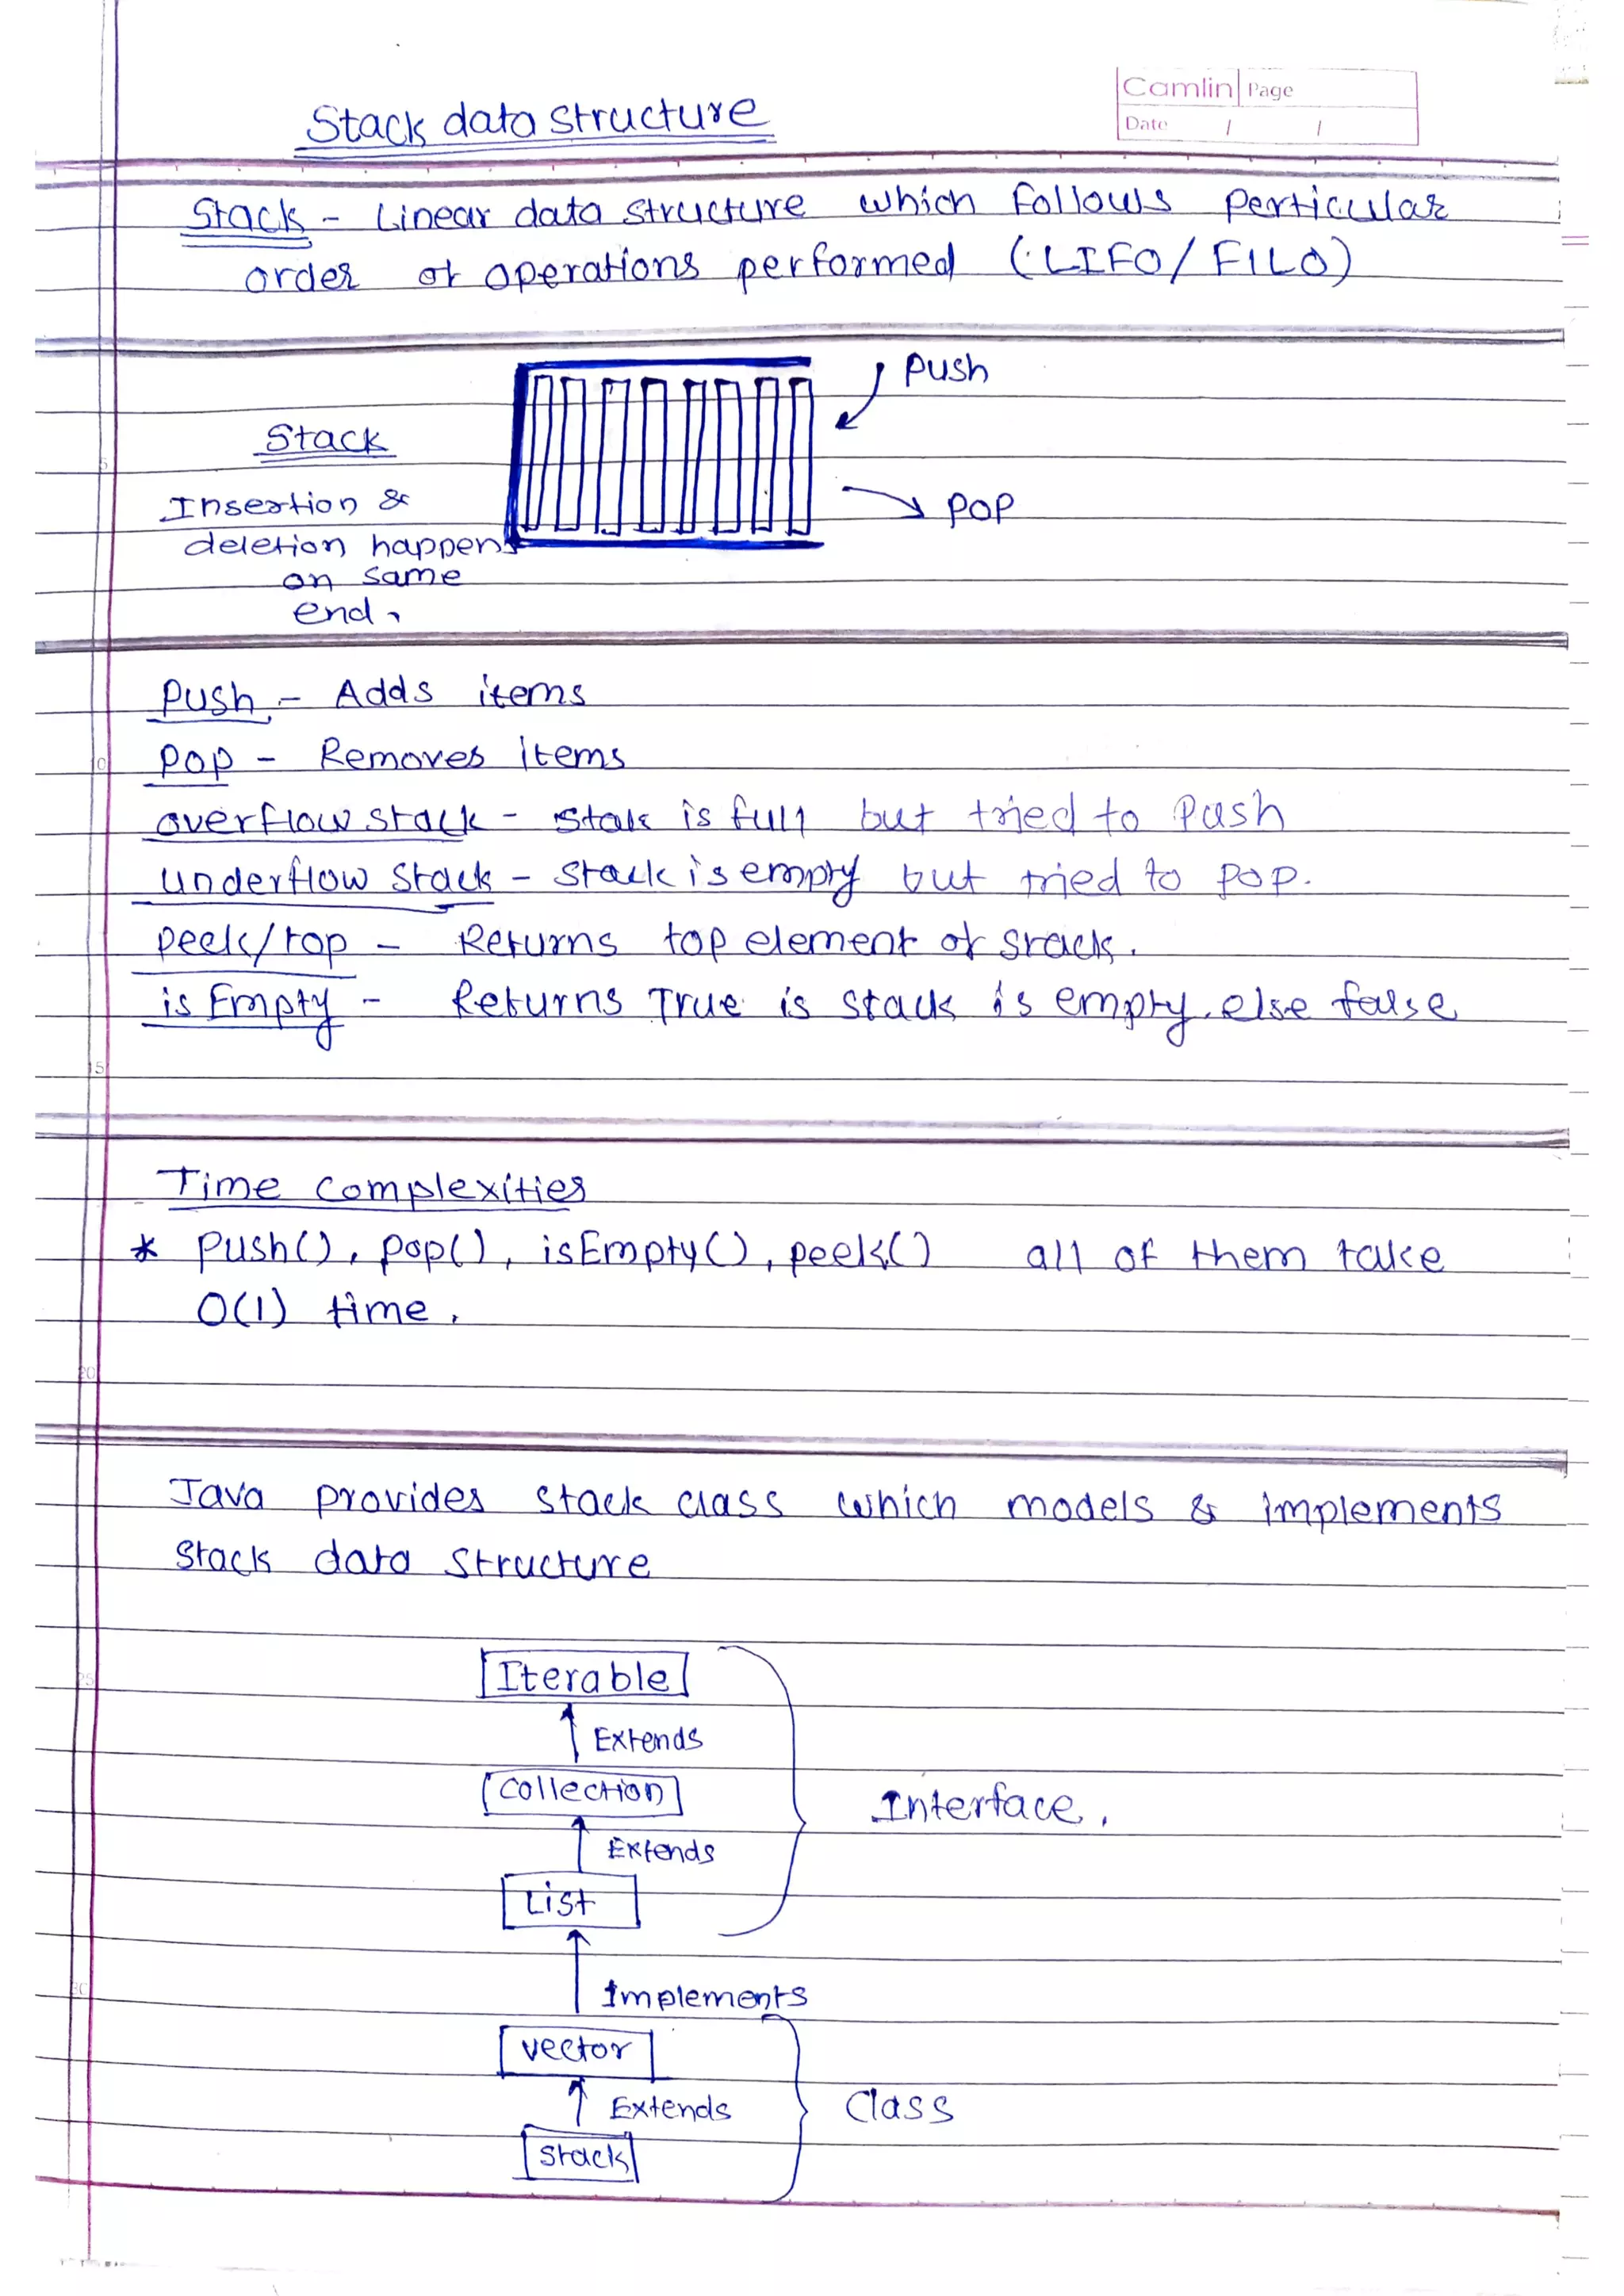 Stack data structure
Camlin Page
Date / /
Stack - Linear data structure which follows perticular
order of operations performed (LIFO/FILO)
Push
Stack
Insertion &
pop
deletion happens
on same
end.
Push - Adds items
pop - Removes items
overflow stack - stak is full but tried to Push
underflow stack - stack is empty but tried to pop.
peek/top - Returns top element of stack.
is Empty - Returns True is stack is empty. else false
Time complexities
* push(), pop(), isEmpty(), peek() all of them take
O(1) time.
Java provides stack class which models & implements
stack data structure
Iterable
Extends
Collection
Interface.
Extends
List
Implements
vector
Extends
Class
stack
5
10
15
20
25
30